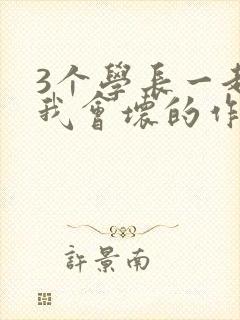 3个學長一起
我會壞的作
許景南